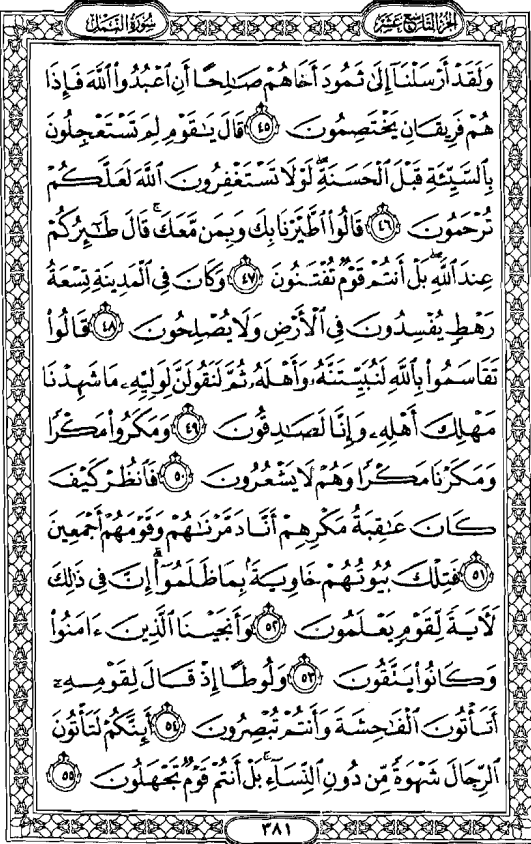 سُورَةُ النَّمْلِ
الجُزْءُ التَّاسِعَ عَشَرَ
وَلَقَدْ أَرْسَلْنَآ إِلَىٰ ثَمُودَ أَخَاهُمْ صَٰلِحًا أَنِ ٱعْبُدُوا۟ ٱللَّهَ فَإِذَا
هُمْ فَرِيقَانِ يَخْتَصِمُونَ ٤٥ قَالَ يَٰقَوْمِ لِمَ تَسْتَعْجِلُونَ
بِٱلسَّيِّئَةِ قَبْلَ ٱلْحَسَنَةِ ۖ لَوْلَا تَسْتَغْفِرُونَ ٱللَّهَ لَعَلَّكُمْ
تُرْحَمُونَ ٤٦ قَالُوا۟ ٱطَّيَّرْنَا بِكَ وَبِمَن مَّعَكَ ۚ قَالَ طَٰٓئِرُكُمْ
عِندَ ٱللَّهِ ۖ بَلْ أَنتُمْ قَوْمٌ تُفْتَنُونَ ٤٧ وَكَانَ فِى ٱلْمَدِينَةِ تِسْعَةُ
رَهْطٍ يُفْسِدُونَ فِى ٱلْأَرْضِ وَلَا يُصْلِحُونَ ٤٨ قَالُوا۟
تَقَاسَمُوا۟ بِٱللَّهِ لَنُبَيِّتَنَّهُۥ وَأَهْلَهُۥ ثُمَّ لَنَقُولَنَّ لِوَلِيِّهِۦ مَا شَهِدْنَا
مَهْلِكَ أَهْلِهِۦ وَإِنَّا لَصَٰدِقُونَ ٤٩ وَمَكَرُوا۟ مَكْرًا
وَمَكَرْنَا مَكْرًا وَهُمْ لَا يَشْعُرُونَ ٥٠ فَٱنظُرْ كَيْفَ
كَانَ عَٰقِبَةُ مَكْرِهِمْ أَنَّا دَمَّرْنَٰهُمْ وَقَوْمَهُمْ أَجْمَعِينَ
٥١ فَتِلْكَ بُيُوتُهُمْ خَاوِيَةًۢ بِمَا ظَلَمُوٓا۟ ۗ إِنَّ فِى ذَٰلِكَ
لَءَايَةً لِّقَوْمٍ يَعْلَمُونَ ٥٢ وَأَنجَيْنَا ٱلَّذِينَ ءَامَنُوا۟
وَكَانُوا۟ يَتَّقُونَ ٥٣ وَلُوطًا إِذْ قَالَ لِقَوْمِهِۦٓ
أَتَأْتُونَ ٱلْفَٰحِشَةَ وَأَنتُمْ تُبْصِرُونَ ٥٤ أَئِنَّكُمْ لَتَأْتُونَ
ٱلرِّجَالَ شَهْوَةً مِّن دُونِ ٱلنِّسَآءِ ۚ بَلْ أَنتُمْ قَوْمٌ تَجْهَلُونَ ٥٥
٣٨١